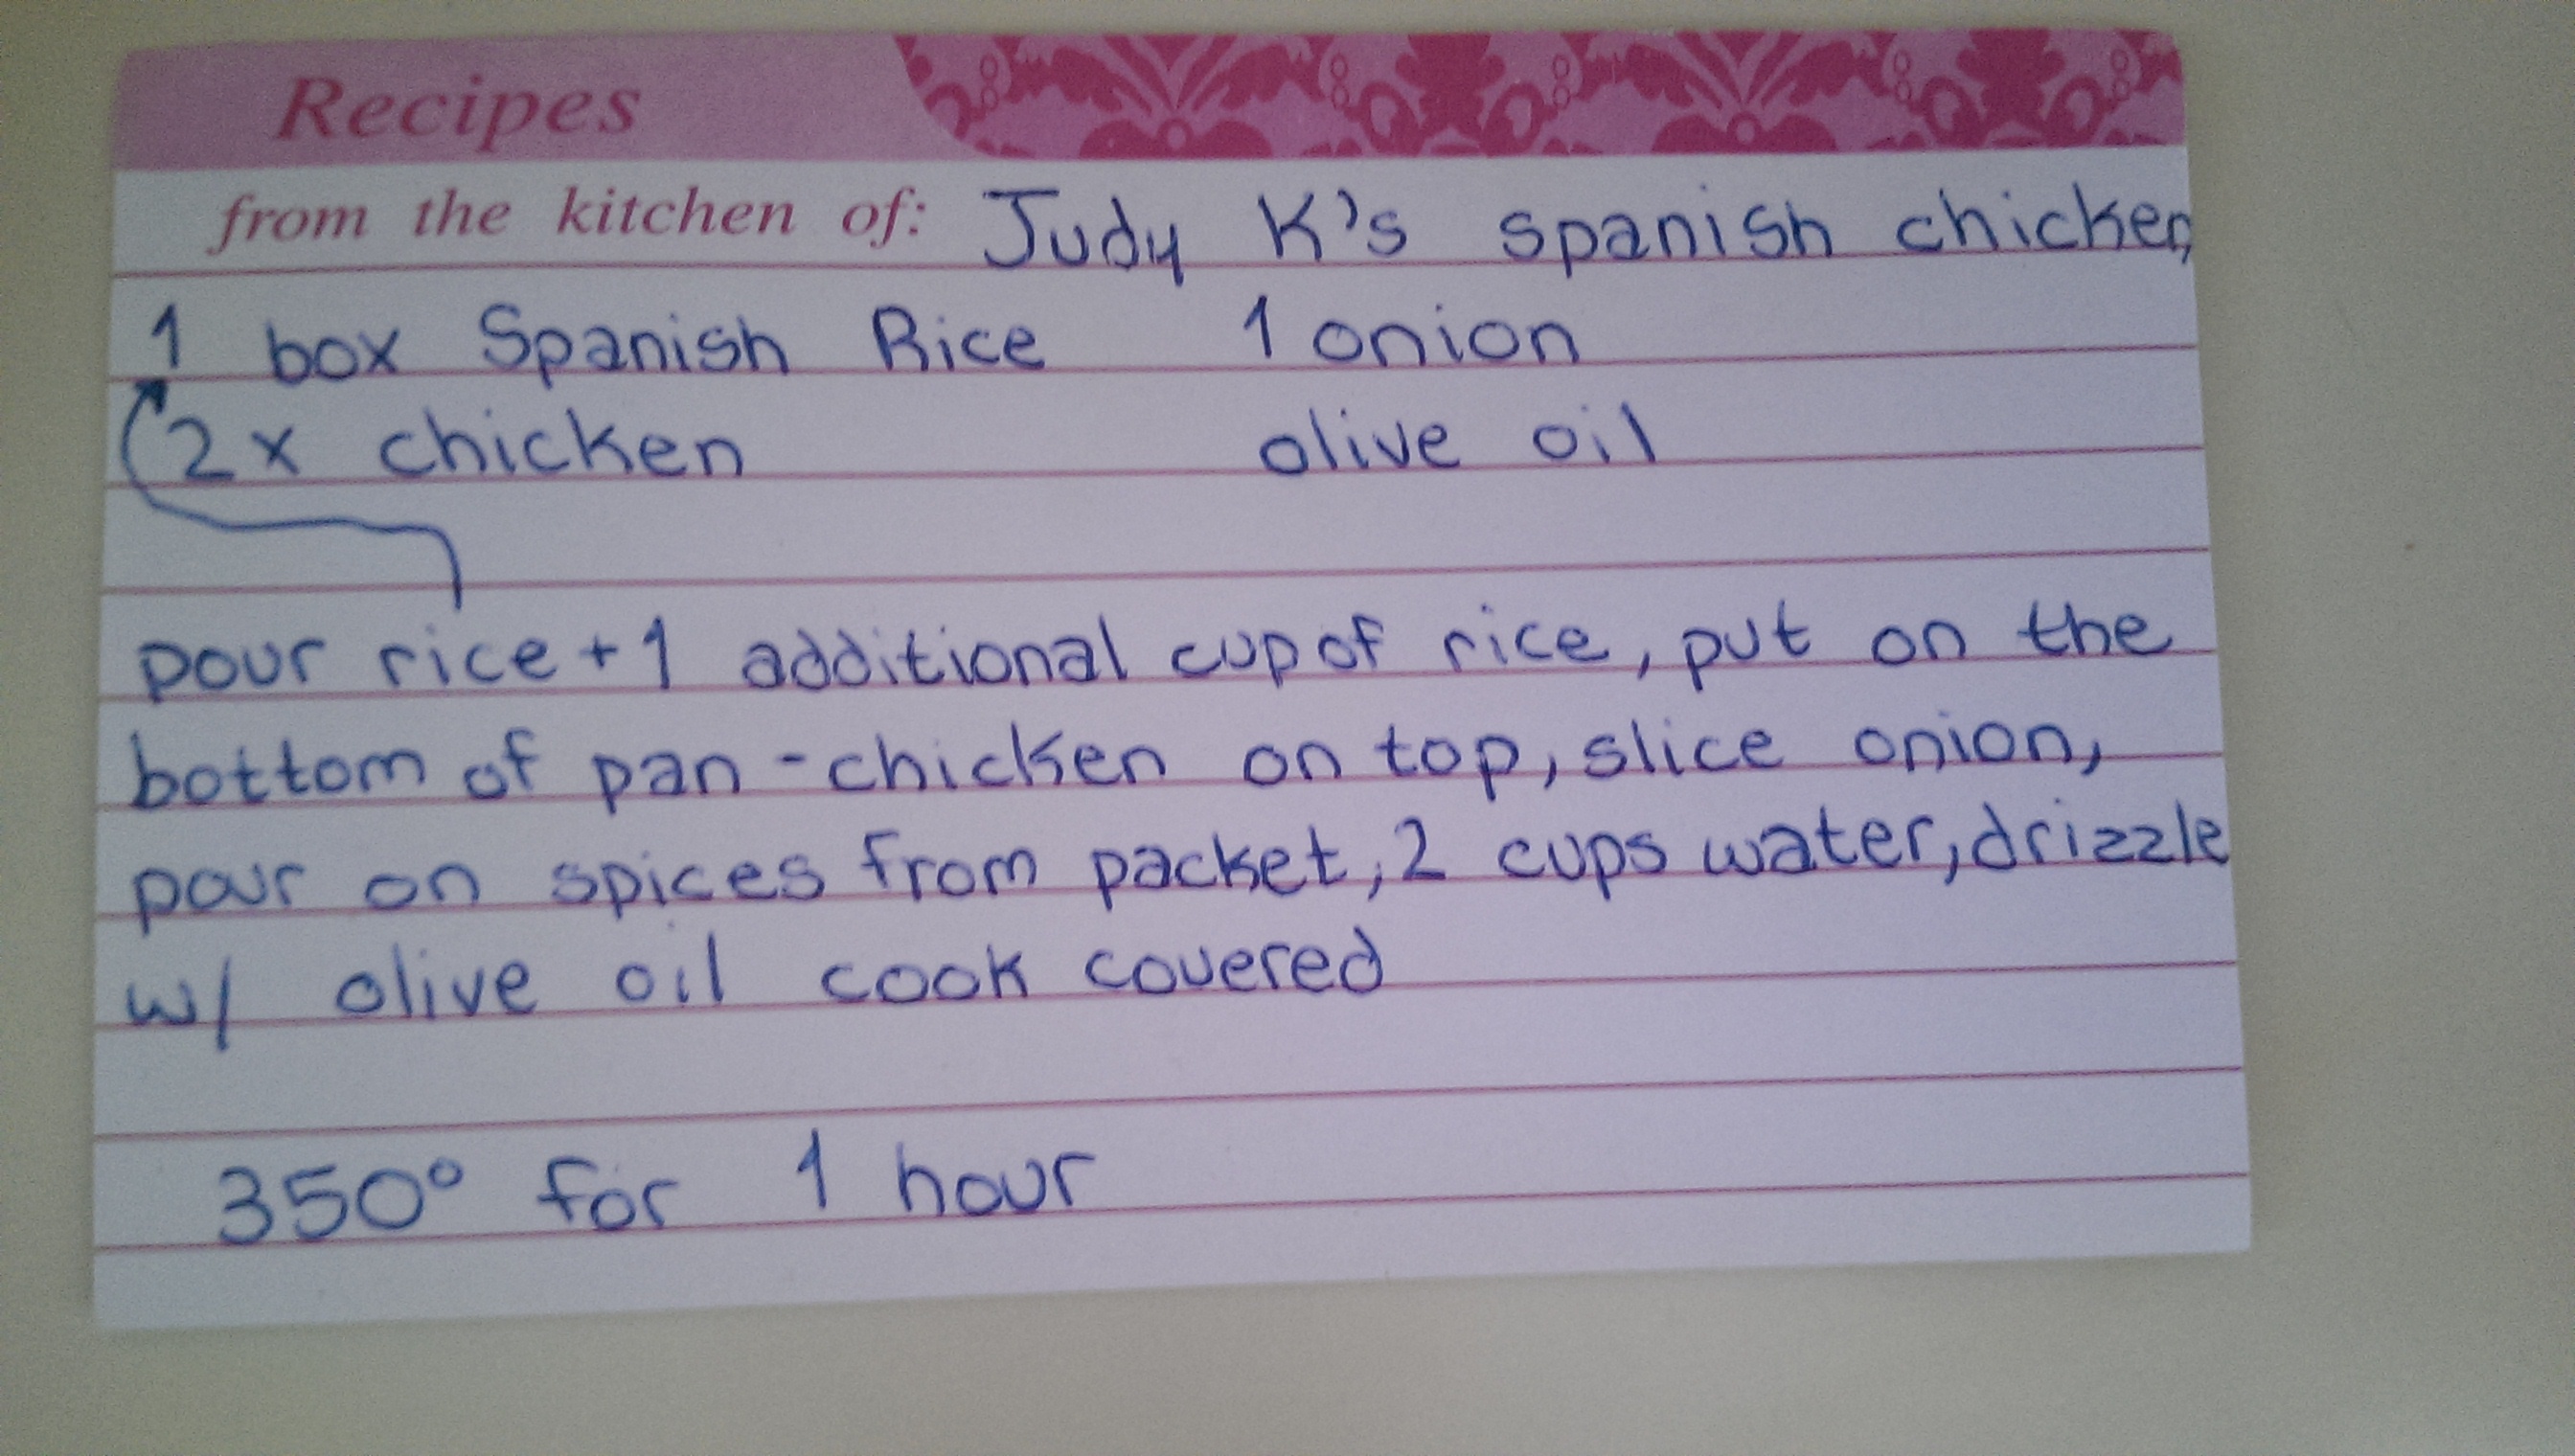 Recipes
from the kitchen of: Judy K's spanish chicken
1 box Spanish Rice 1 onion
2x chicken olive oil
pour rice + 1 additional cup of rice, put on the
bottom of pan - chicken on top, slice onion,
pour on spices from packet, 2 cups water, drizzle
w/ olive oil cook covered
350° for 1 hour